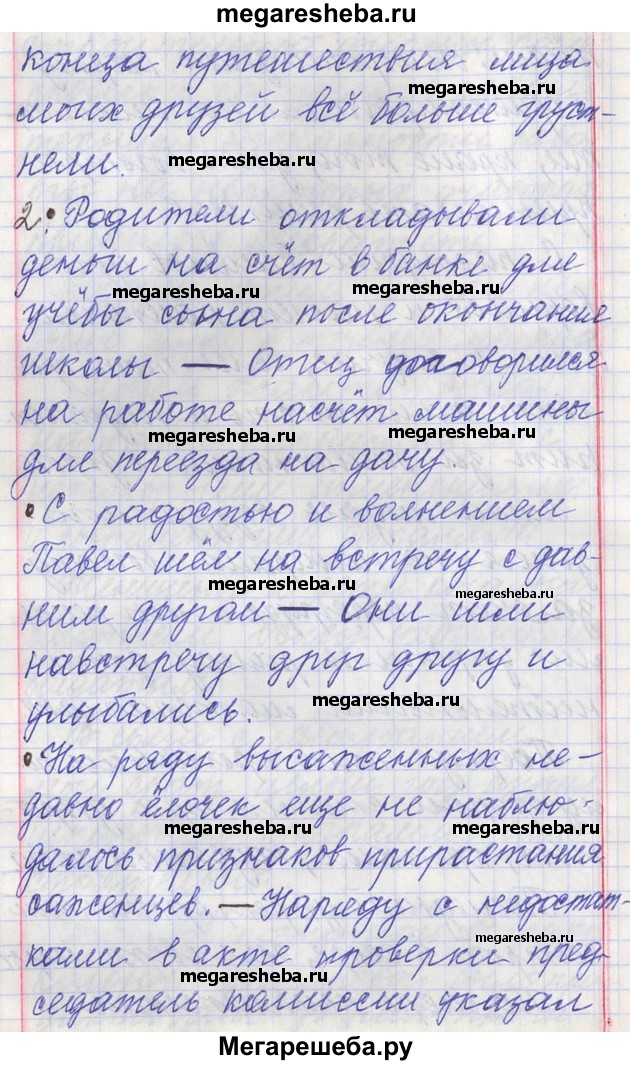 megaresheba.ru
конца путешествия лица
megaresheba.ru
моих друзей всё больше груст-
нели.
megaresheba.ru
2. • Родители откладывали
деньги на счёт в банке для
megaresheba.ru
megaresheba.ru
учёбы сына после окончания
школы — Отец договорился
на работе насчёт машины
megaresheba.ru
megaresheba.ru
для переезда на дачу.
• С радостью и волнением
Павел шёл на встречу с дав-
megaresheba.ru
megaresheba.ru
ним другом — Они шли
навстречу друг другу и
megaresheba.ru
улыбались.
• На ряду высаженных не-
давно ёлочек еще не наблю-
megaresheba.ru
megaresheba.ru
далось признаков прирастания
саженцев. — Наряду с недостат-
megaresheba.ru
ками в акте проверки пред-
megaresheba.ru
седатель комиссии указал
Мегарешеба.ру